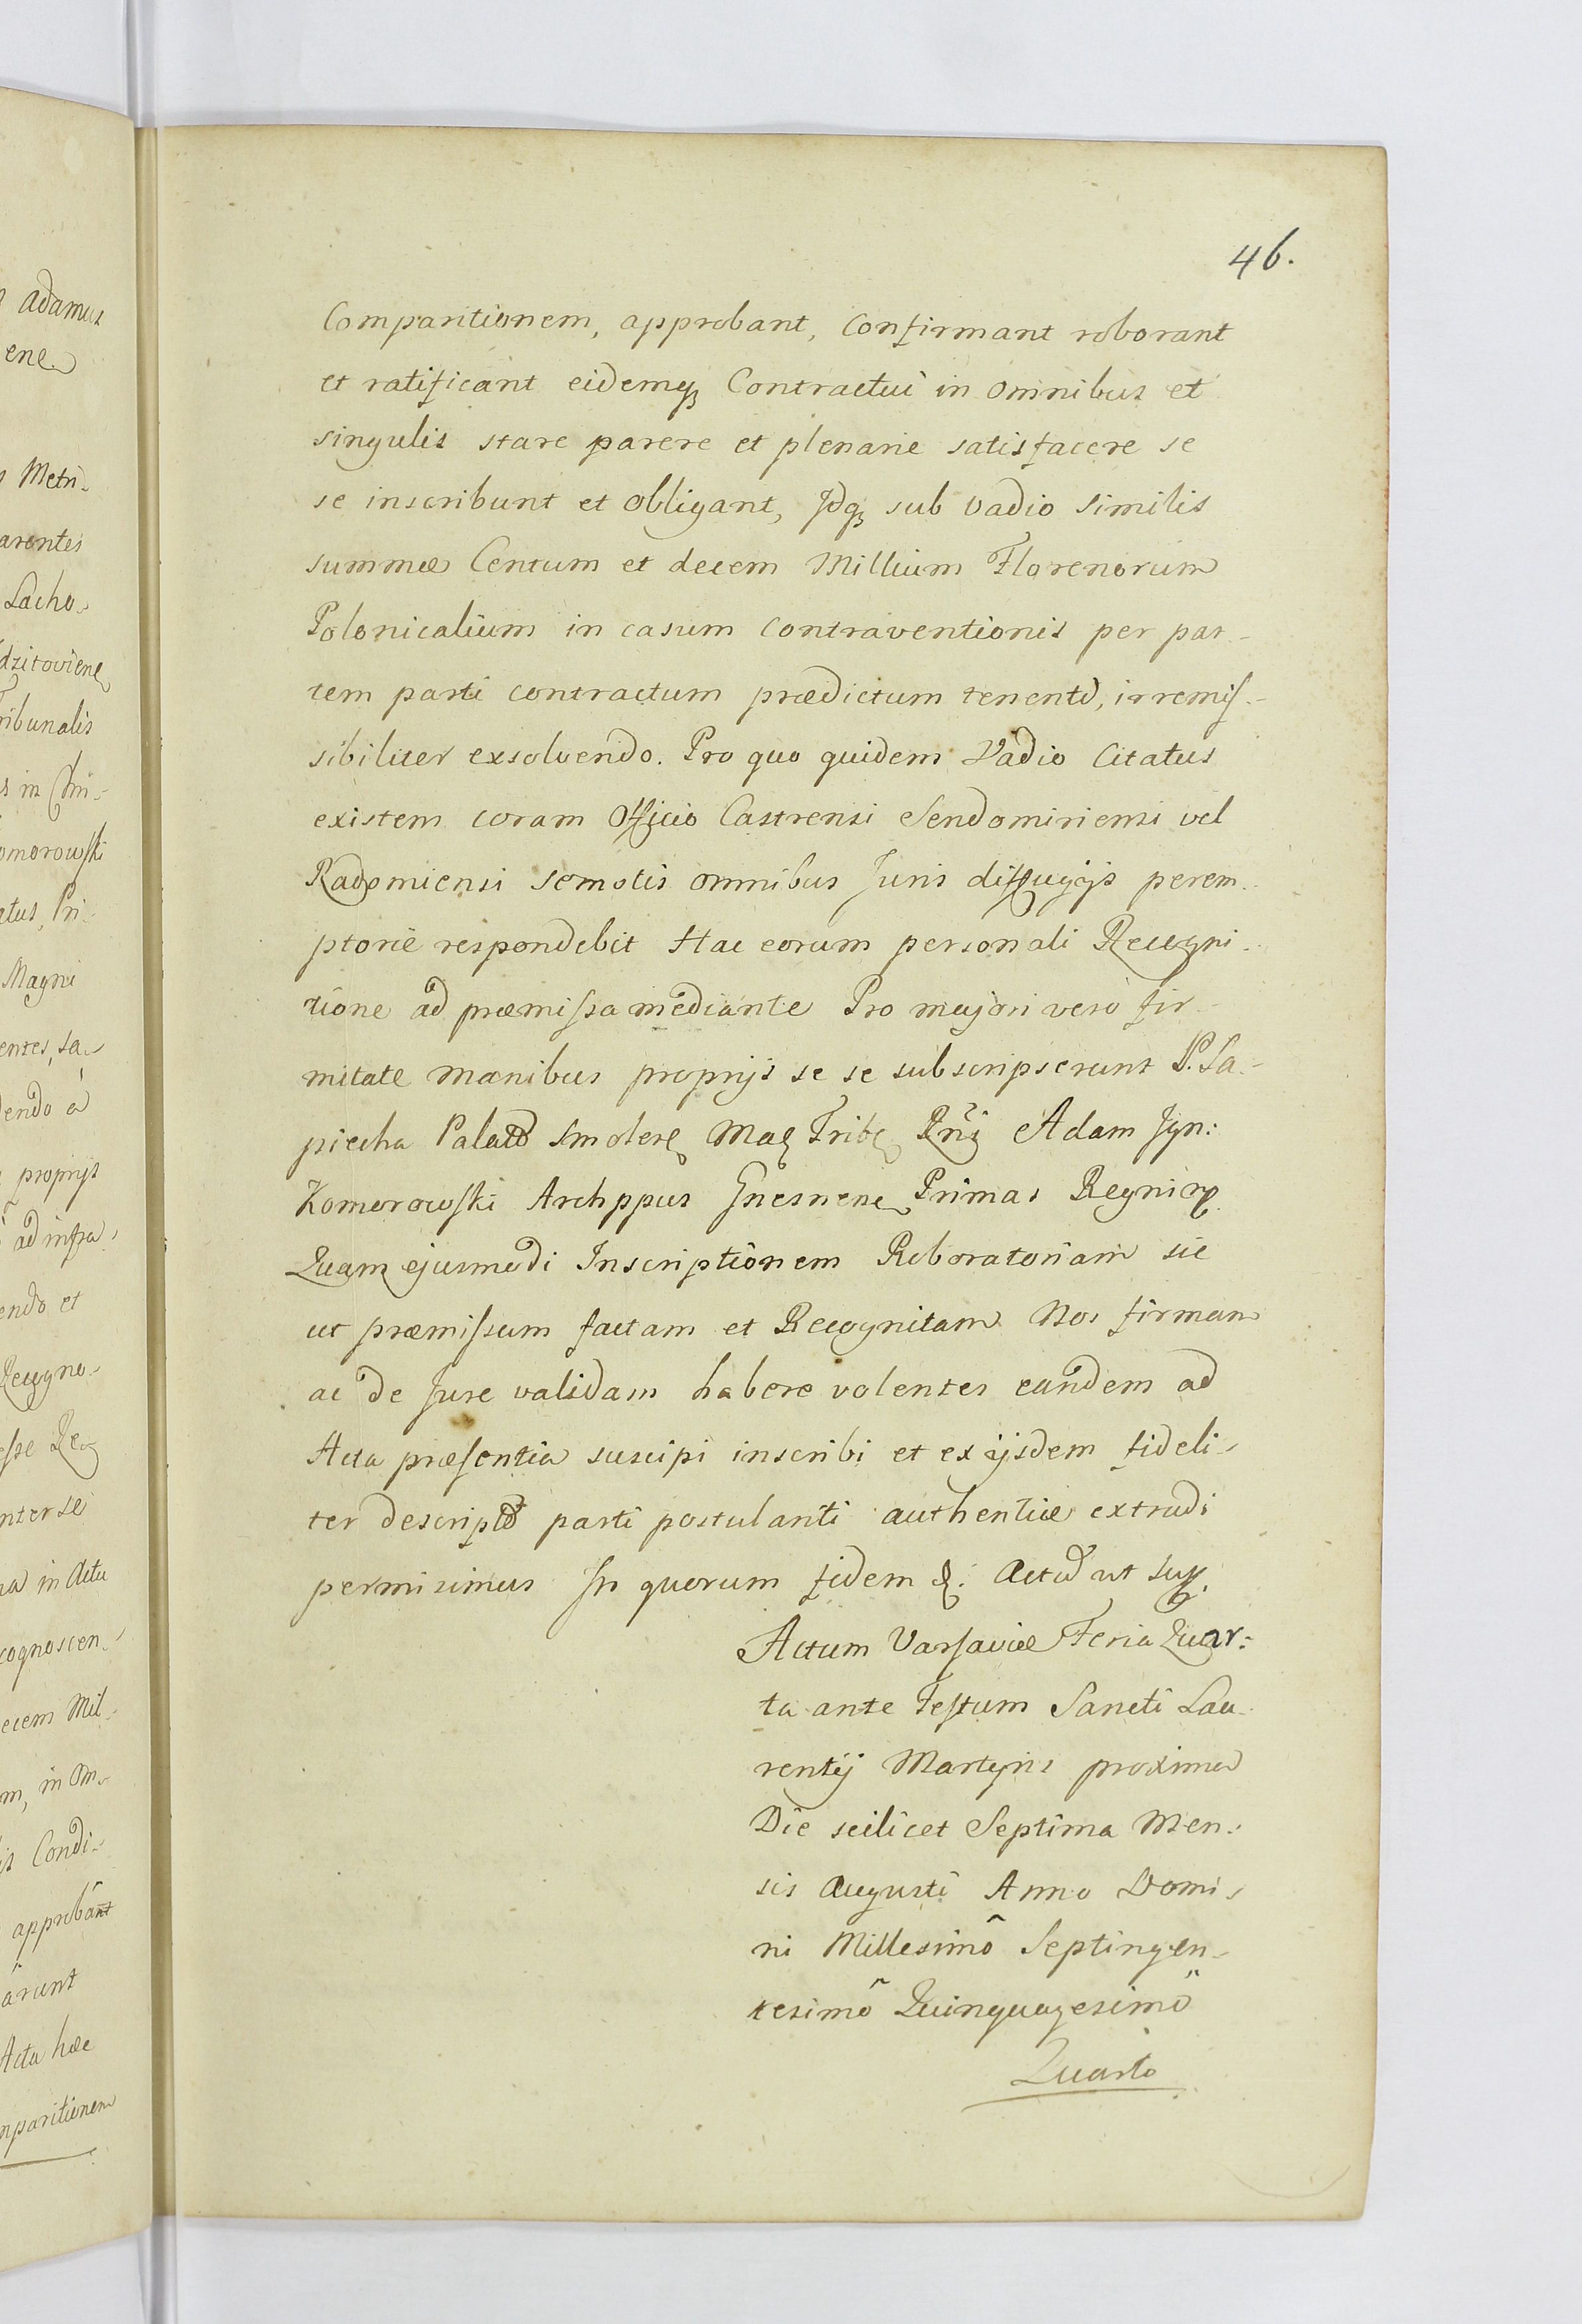 46.
Comparitionem, approbant, Confirmant roborant
et ratificant eidemq₃ Contractui in omnibus et
singulis stare parere et plenarie satisfacere se
se inscribunt et obligant, Idq₃ sub vadio similis
summæ Centum et decem Millium Florenorum
Polonicalium in casum contraventionis per par-
tem parti contractum prædictum tenenti, irremis-
sibiliter exsolvendo. Pro quo quidem Vadio Citatus
existem coram Officio Castrensi Sendomiriensi vel
Radomiensi semotis omnibus Juris diffugijs perem-
ptorie respondebit Hac eorum personali Recogni-
tione ad præmissa mediante Pro majori vero fir-
mitate manibus proprijs se se subscripserunt P. Sa-
piecha Palat Smolen Mag Trib Adam Jgn:
Komorowski Archppus Gnesnen Primas Regni
Quam ejusmodi Inscriptionem Roboratoriam sic
ut præmissum factam et Recognitam Nos firmam
ac de Jure validam habere volentes eandem ad
Acta præsentia suscipi inscribi et ex ijsdem fideli-
ter descript parti postulanti authentice extradi
permisimus In quorum fidem &: Act ut sup.
Actum Varsaviæ Feria Quar:
ta ante Festum Sancti Lau-
rentij Martyris proxima
Die scilicet Septima Men:
sis Augusti Anno Domi-
ni Millesimô Septingen-
tesimô Quinquagesimô
Quarto
Adamus
ene
Metri-
arentes
Lacho-
dzitoviene
ribunalis
s in Chi-
omorowski
atus, Pri-
Magni
entes, sa-
dendo a
proprijs
ad infra
endo et
Recogno-
esse Re
nter se
na in Acta
cognoscen-
ecem Mil-
m, in Om-
is Condi-
approbant
arunt
Acta hæc
mparitionem